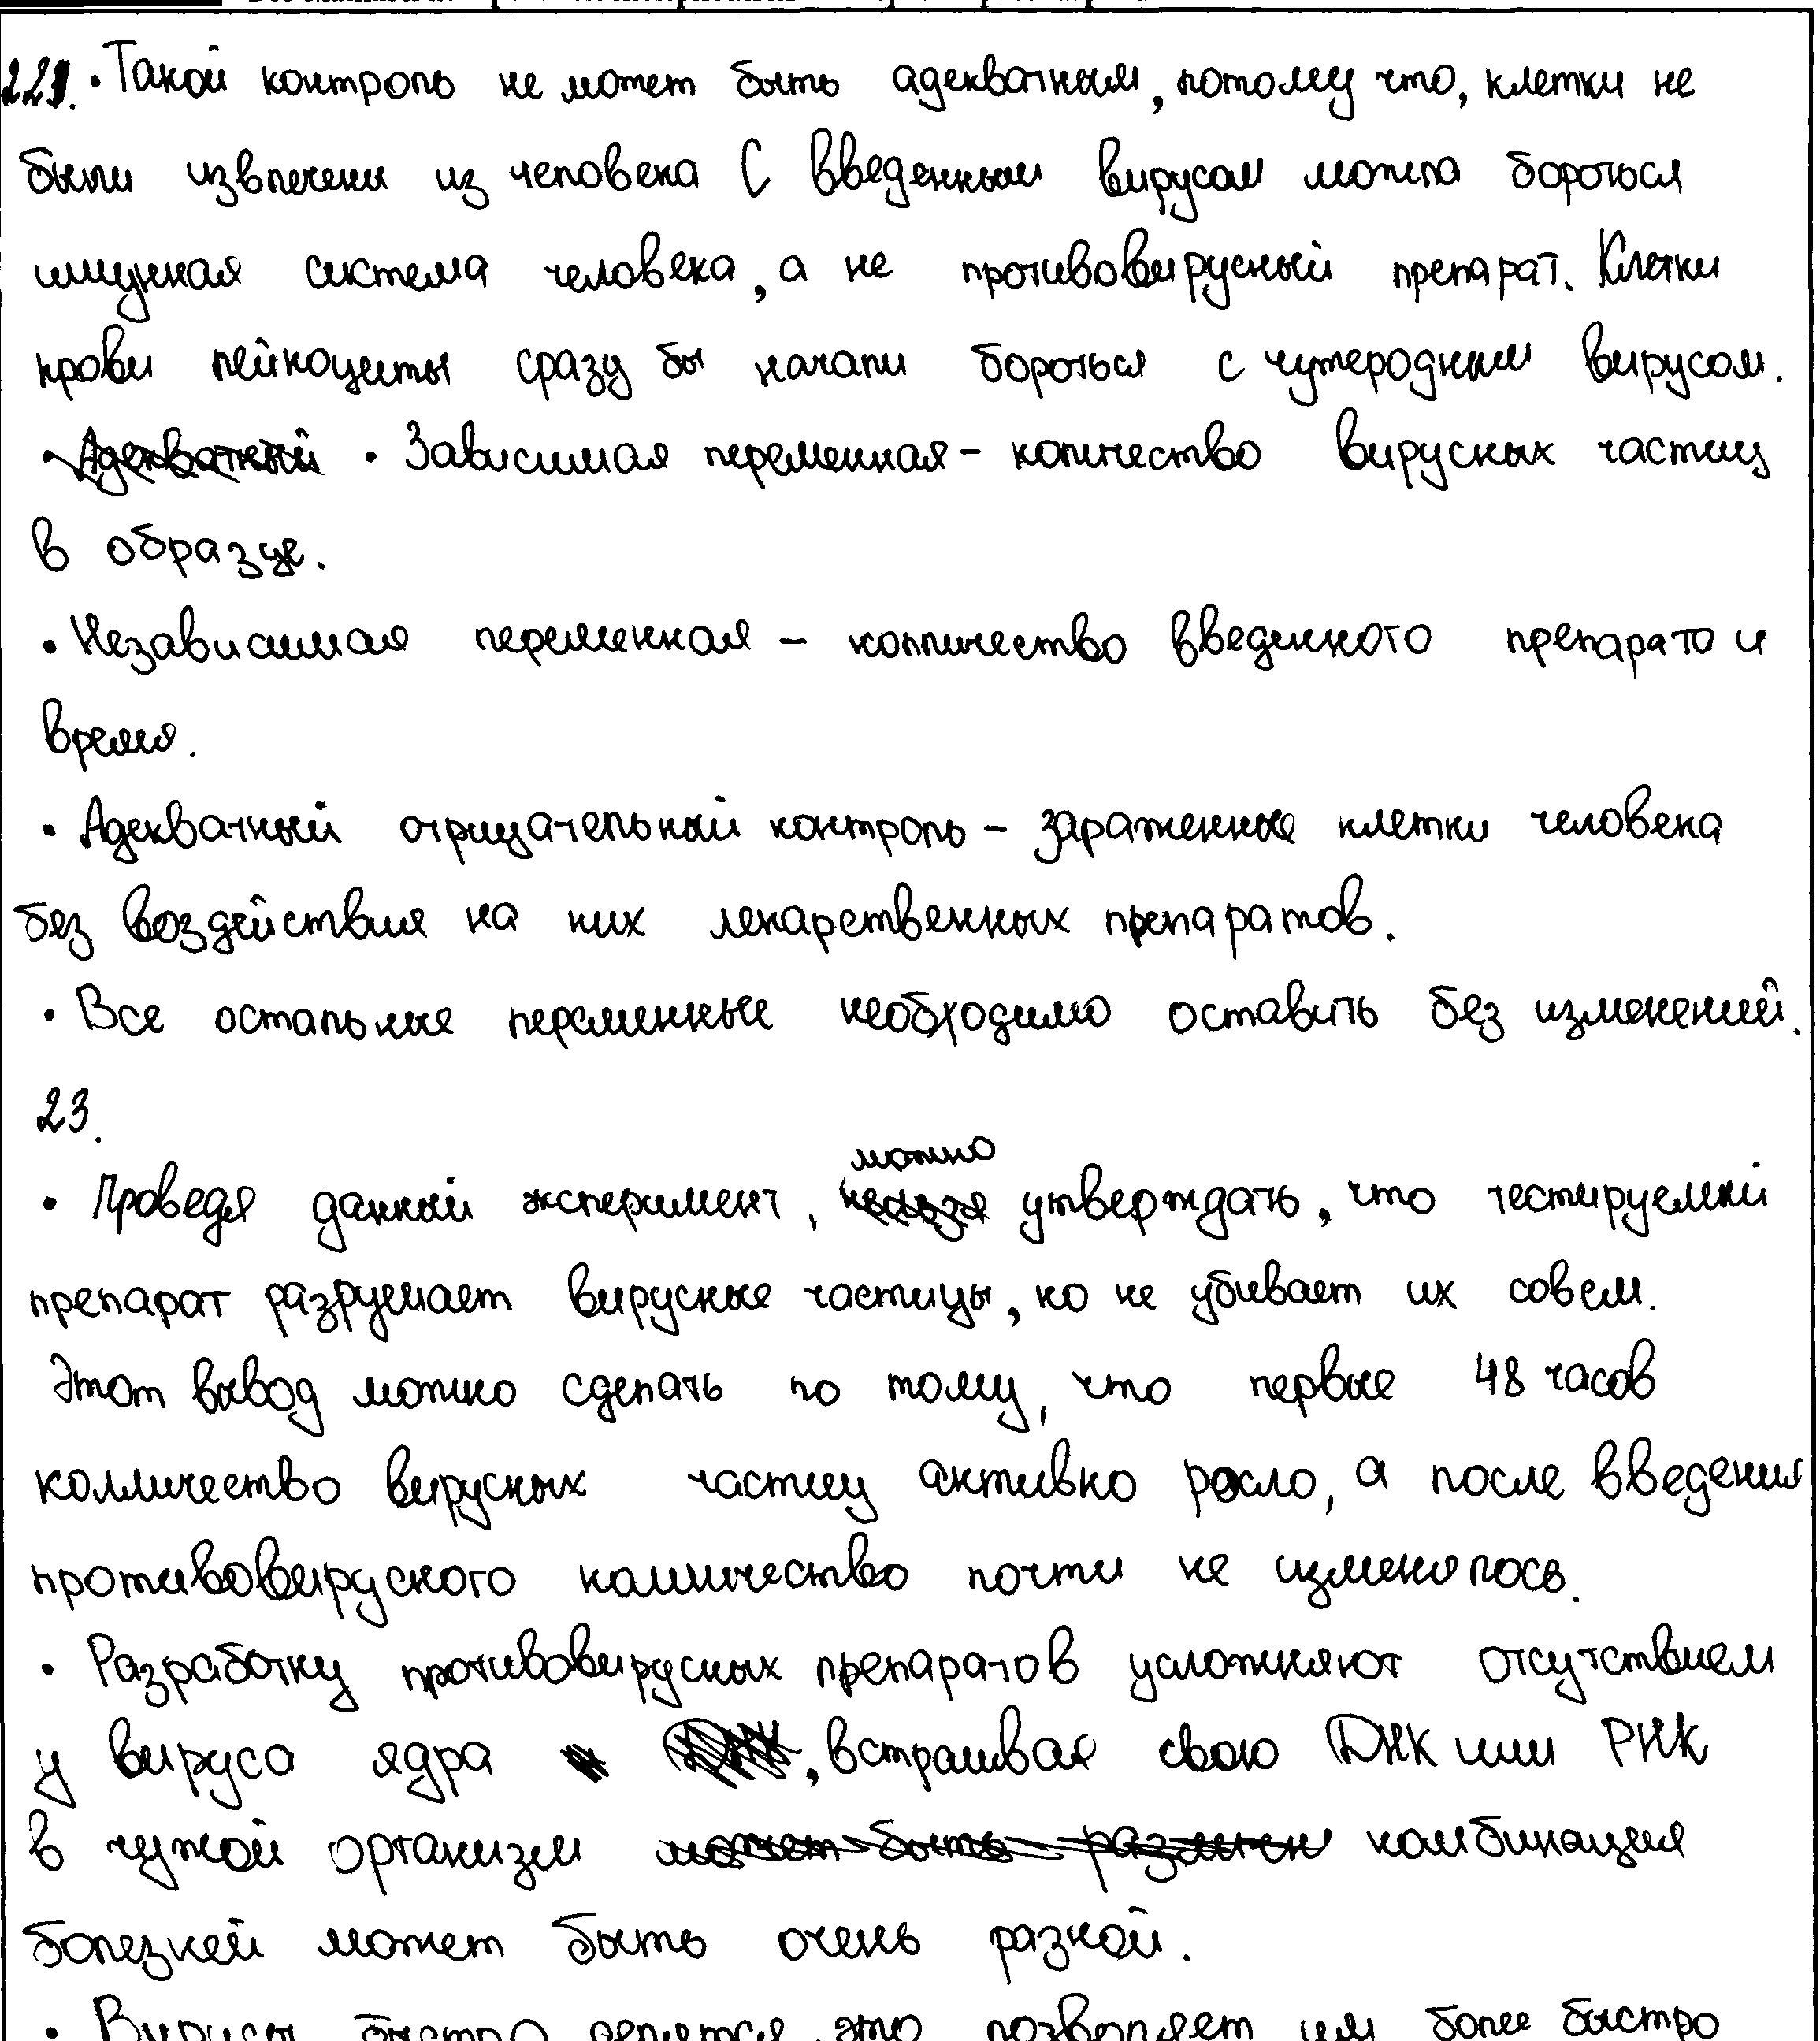 22. • Такой контроль не может быть адекватным, потому что, клетки не
были извлечены из человека С введенным вирусом могла бороться
имунная система человека, а не противовирусный препарат. Клетки
крови лейкоциты сразу бы начали бороться с чужеродным вирусом.
• Адекватный • Зависимая переменная - количество вирусных частиц
в образце.
• Независимая переменная - колличество введенного препарата и
время.
• Адекватный отрицательный контроль - зараженные клетки человека
без воздействия на них лекарственных препаратов.
• Все остальные переменные необходимо оставить без изменений.
23.
можно
• Проведя данный эксперимент, нельзя утверждать, что тестируемый
препарат разрушает вирусные частицы, но не убивает их совсем.
Этот вывод можно сделать по тому, что первые 48 часов
колличество вирусных частиц активно росло, а после введения
противовирусного колличество почти не изменялось.
• Разработку противовирусных препаратов усложняют отсутствием
у вируса ядра, встраивая свою ДНК или РНК
в чужой организм может быть различн комбинация
болезней может быть очень разной.
• Вирусы быстро делятся, это позволяет им более быстро